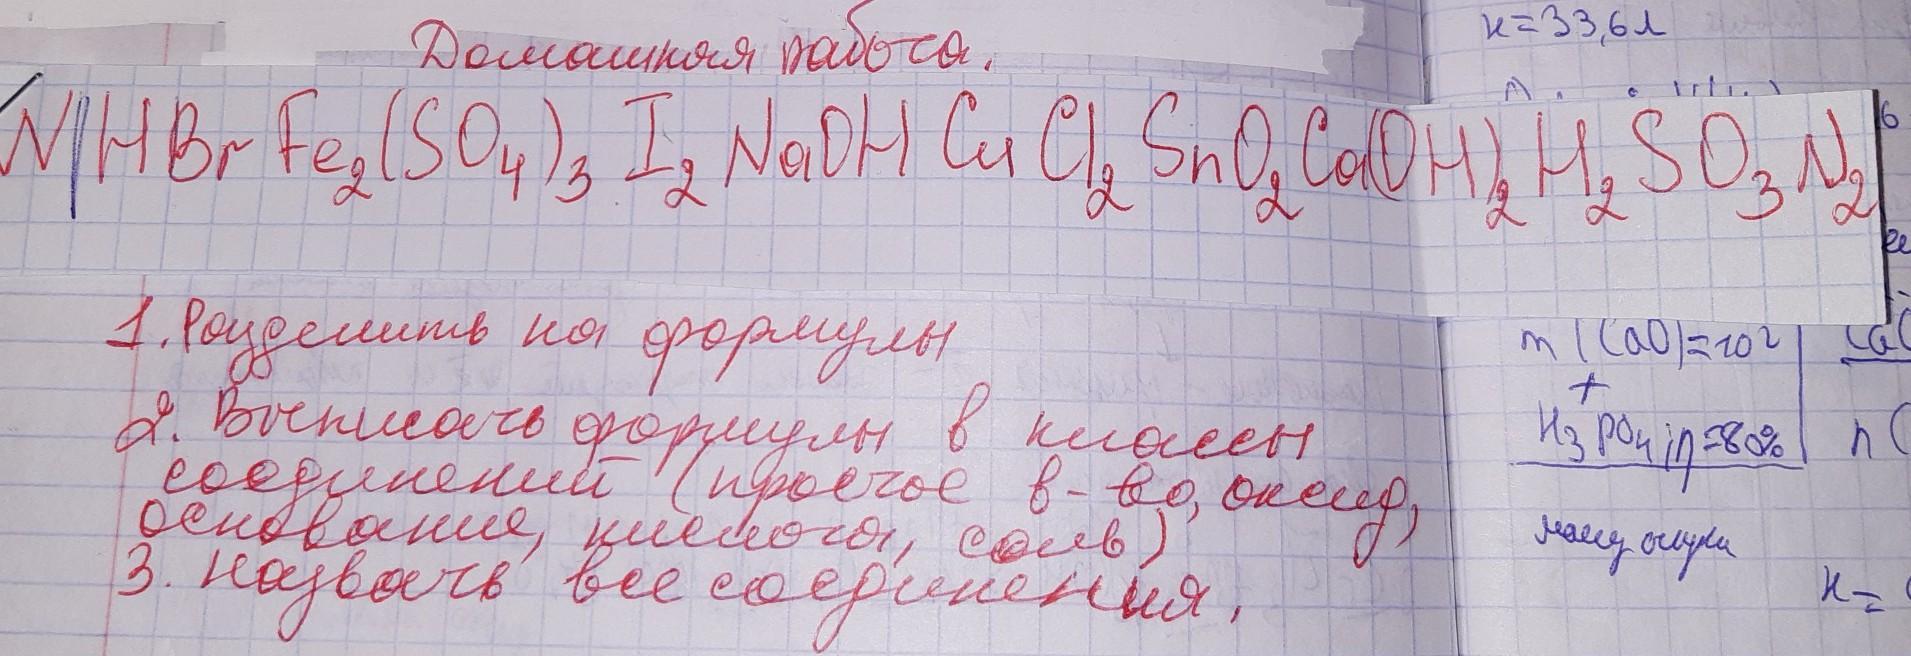 Домашняя работа.
N|HBrFe₂(SO₄)₃I₂NaOHCuCl₂SnO₂Ca(OH)₂H₂SO₃N₂
1. Разделить на формулы
2. Выписать формулы в классы
соединений (простое в-во, оксид,
основание, кислота, соль)
3. Назвать все соединения.
x=33,6л
m(CaO)=10г
+
H₃PO₄; η=80%
n(
x=